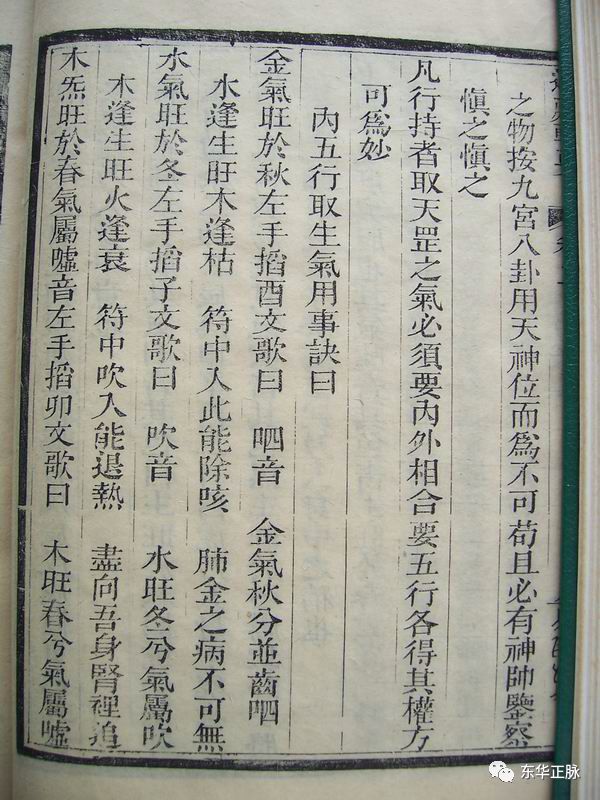 之物按九宮八卦用天神位而爲不可苟且必有神師鑒察
愼之愼之
凡行持者取天罡之氣必須要內外相合要五行各得其權方
可爲妙
內五行取生氣用事訣曰
金氣旺於秋左手搯酉文歌曰 呬音 金氣秋分並齒呬
水逢生旺木逢枯 符中入此能除咳 肺金之病不可無
水氣旺於冬左手搯子文歌曰 吹音 水旺冬兮氣屬吹
木逢生旺火逢衰 符中吹入能退熱 盡向吾身腎裡追
木炁旺於春氣屬噓音左手搯卯文歌曰 木旺春兮氣屬噓
东华正脉